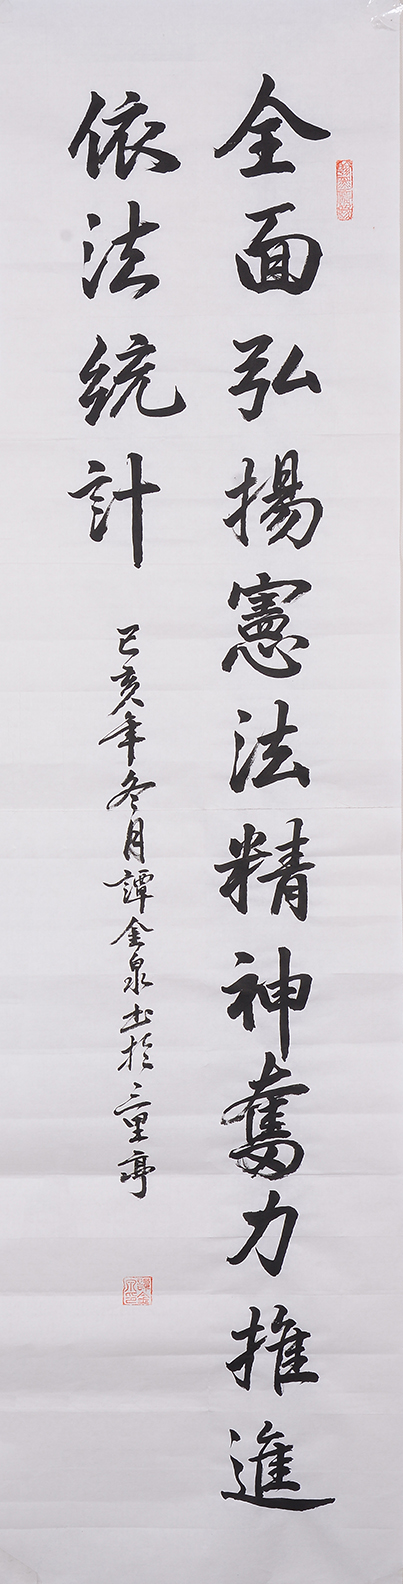 全面弘揚憲法精神奮力推進
依法統計
己亥年冬月譚金泉书於三里亭